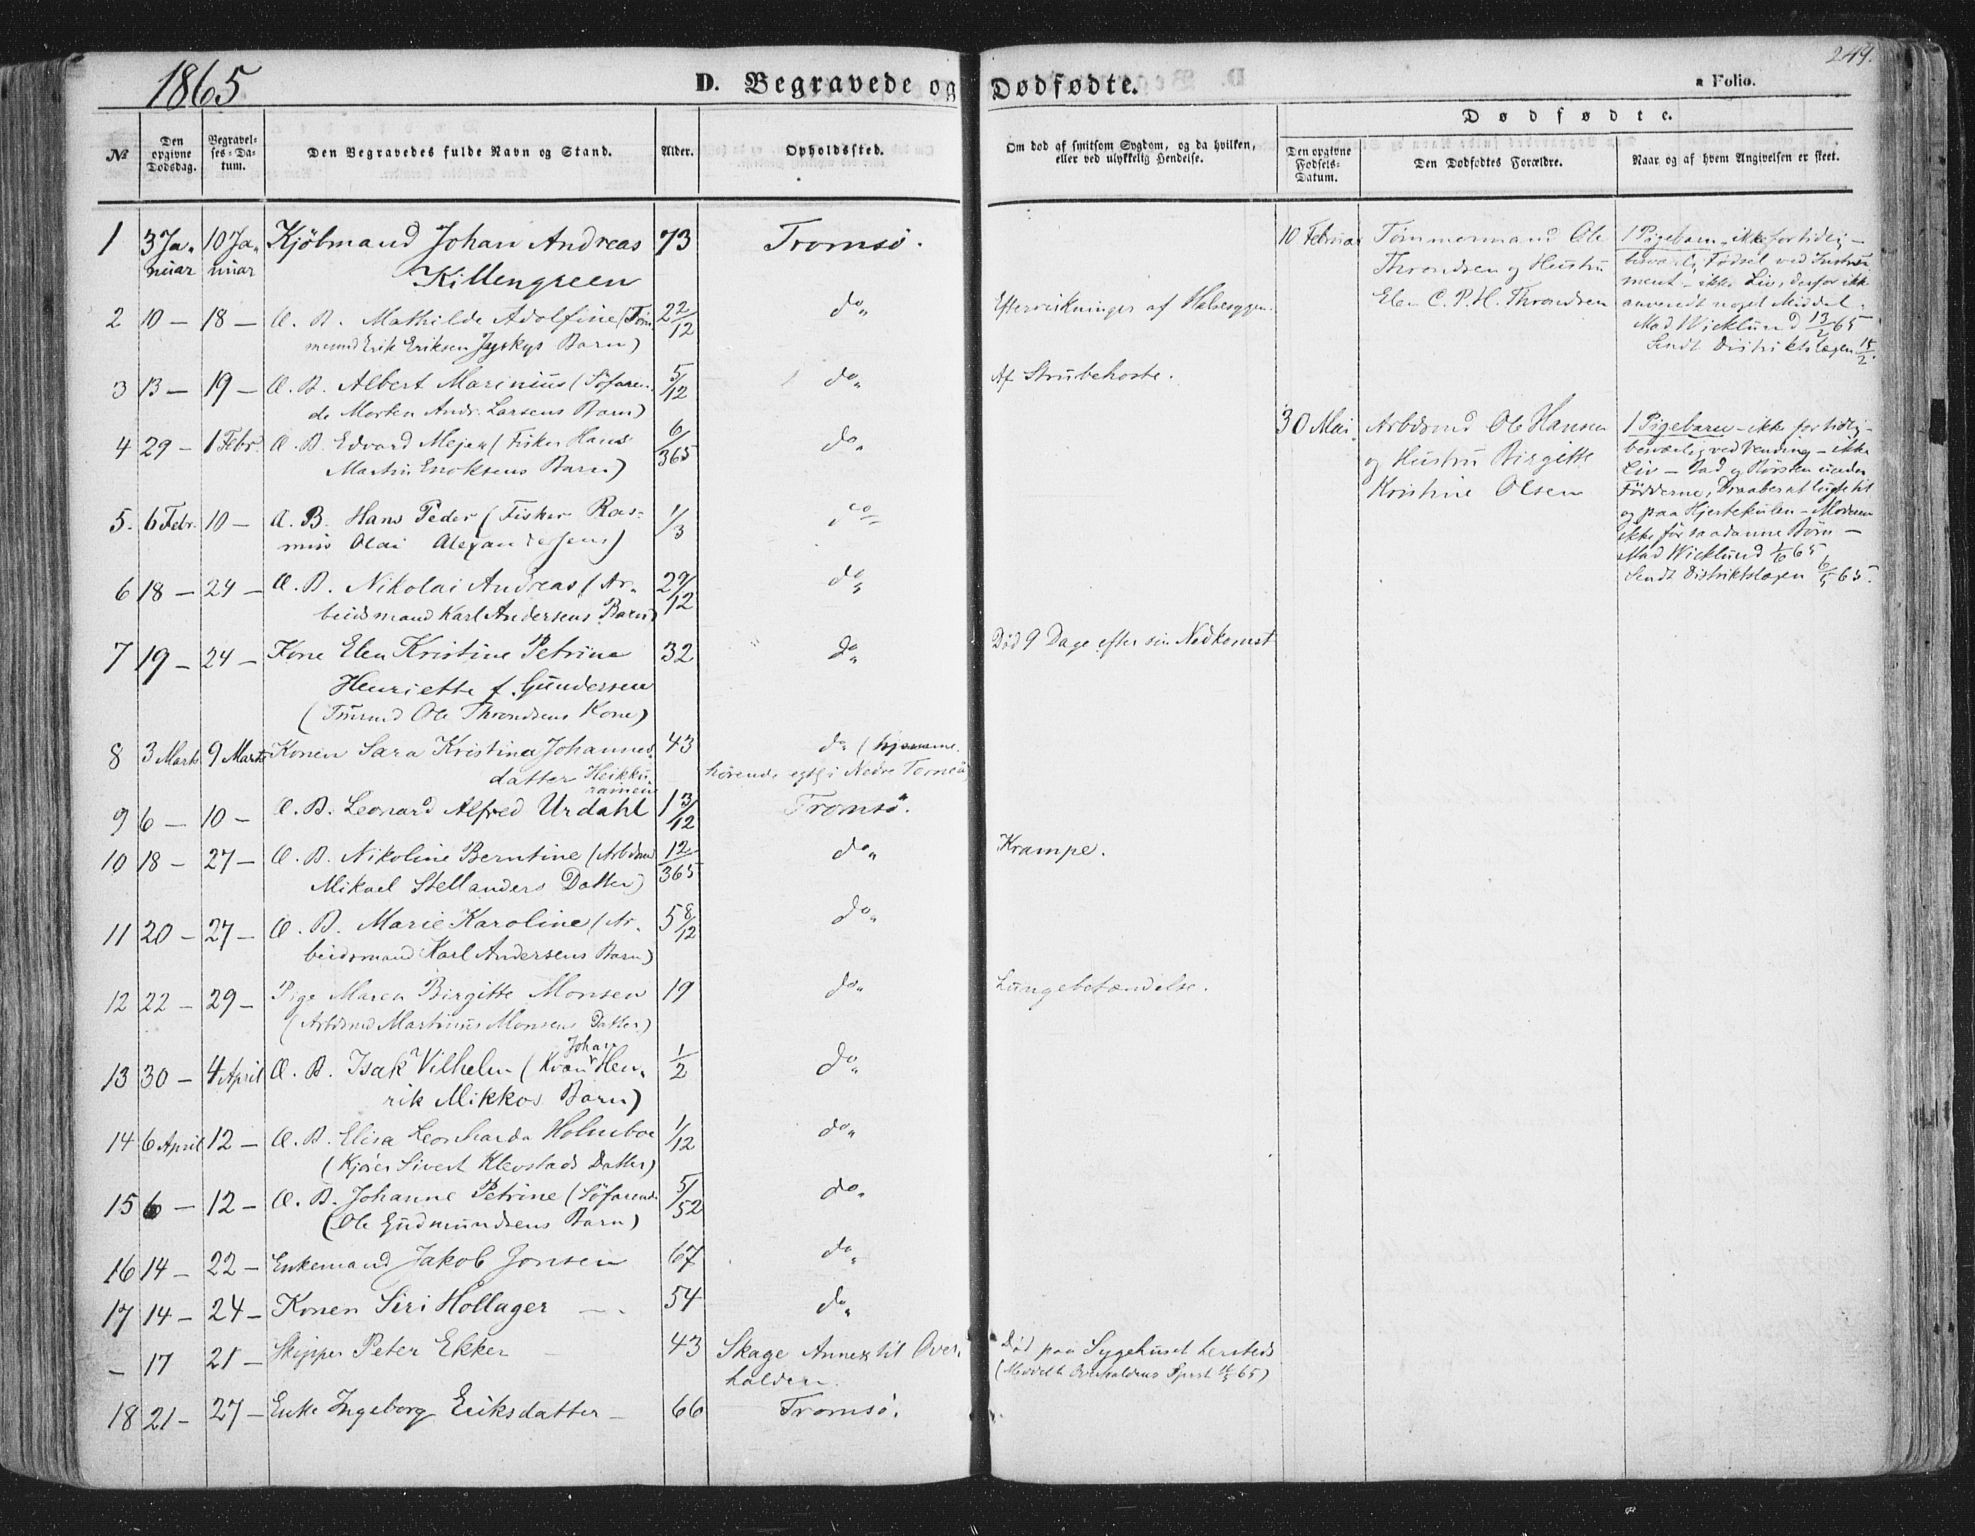 1865
D. Begravede og Dødfødte.
249.
a Folio.
№
Den opgivne Dødsdag.
Begravelses-Datum.
Den Begravedes fulde Navn og Stand.
Alder.
Opholdssted.
Om død af smitsom Sygdom, og da hvilken, eller ved ulykkelig Hendelse.
Dødfødte.
Den opgivne Fødsels-Datum.
Den Dødfødtes Forældre.
Naar og af hvem Angivelsen er skeet.
1 3 Ja- 10 Ja- Kjöbmand Johan Andreas 73 Tromsö.
nuar nuar Killengreen
2 10 — 18 — Æ. B. Mathilde Adolfine (Töm 2 2/12 do Eftervirkninger af Halssygen.
mermd Erik Eriksen Jyskys Barn)
3 13 — 19 — Æ. B. Albert Marinius (Söfaren 5/12 do Af Strubehoste.
de Morten Andr. Larsens Barn)
4 29 — 1 Febr. Æ. B. Edvard Mejer (Fisker Hans 6/365 do
Martin Enoksens Barn)
5. 6 Febr. 10 — Æ. B. Hans Peder (Fisker Ras- 1/3 do
mus Olai Alexandersens)
6 18 — 24 — Æ. B. Nikolai Andreas (Ar- 2 9/12 do
beidsmand Karl Andersens Barn)
7 19 — 24 — Kone Elen Kristine Petrine 32 do Död 9 Dage efter sin Nedkomst
Henriette f. Gundersen
(Tmrmd Ole Throndsens Kone)
8 3 Marts 9 Marts Konen Sara Kristina Johannes 43 do (hjemme
datter Heikku hörende egtl. i Nedre Torneå)
ramen
9 6 — 10 — Æ. B. Leonard Alfred Urdahl 1 3/12 Tromsö.
10 18 — 27 — Æ. B. Nikoline Berntine (Arbdsmd 12/365 do Krampe.
Mikael Stellanders Datter)
11 20 — 27 — Æ. B. Marie Karoline (Ar- 5 8/12 do
beidsmand Karl Andersens Barn)
12 22 — 29 — Pige Maren Birgitte Monsen 19 do Lungebetændelse.
(Arbdsmd Martinus Monsens Datter)
13 30 — 4 April Æ. B. Isak Vilhelm (Kvæn Johan Hen- 1/2 do
rik Mikkos Barn)
14 6 April 12 — Æ. B. Elisa Leonharda Holmboe 1/12 do
(Kjöier Sivert Klevstads Datter)
15 6 — 12 — Æ. B. Johanne Petrine (Söfarende 5/52 do
(Ole Gudmundsens Barn)
16 14 — 22 — Enkemand Jakob Jonsen 67 do
17 14 — 24 — Konen Siri Hollager — 54 do
— 17 21 — Skipper Peter Ekker 43 Skage Annex til Over- Död paa Sygehuset hersteds
halden. (Meddelt Overhaldens Sprst 65)
18 21 — 27 — Enke Ingeborg Eriksdatter — 66 Tromsö.
10 Februar Tömmermand Ole
Throndsen og Hustru
Elen C. P. H. Throndsen
1 Pigebarn — ikke for tidlig —
besværlig Födsel ved Instru-
ment — ikke Liv, derfor ikke
anvendt noget Middel.
Mad. Wicklund 13/2 65
Sendt Distriktslægen 15/2.
30 Mai. Arbdsmd Ole Hansen
og Hustru Birgitte
Kristine Olsen
1 Pigebarn — ikke for tidlig —
besværlig ved Vending — ikke
Liv — Bad og Börsten under
Födderne, Draaber at lugte til
og paa Hjertekulen — Moderen
ikke för saadanne Börn —
Mad Wicklund 1/6 65
Sendt Distriktslægen 65.